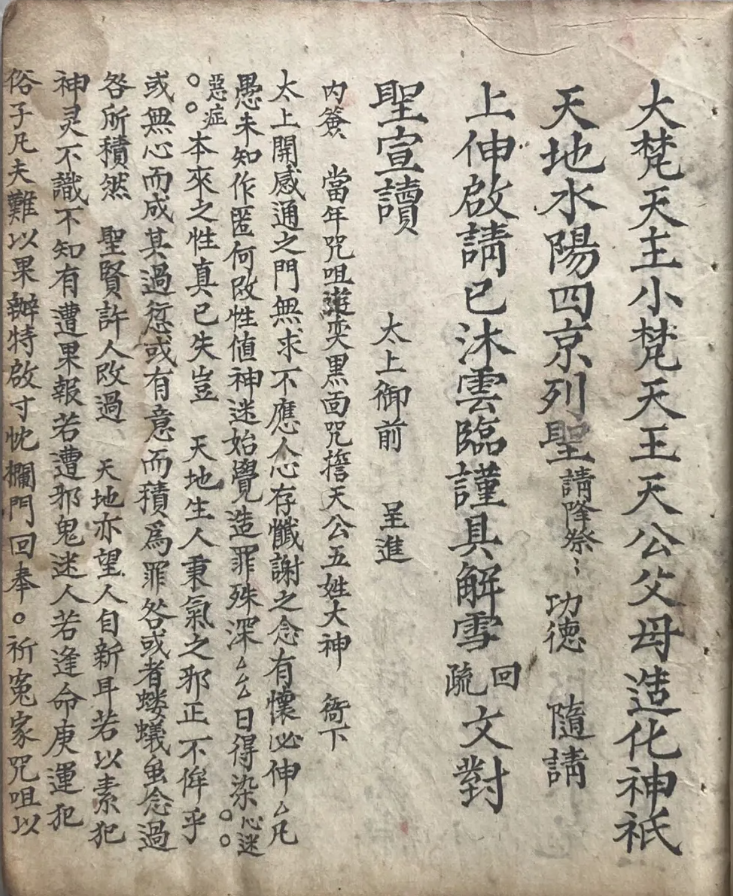 大梵天主小梵天王天公父母造化神祇
天地水陽四京列聖請降祭〻 功德 隨請
上伸啟請已沐雲臨謹具解雪回疏文對
聖宣讀 太上御前 呈進
內簽 當年咒咀面咒天公五姓大神 衙下
太上開感通之門無求不應人心存懺謝之念有懷必伸厶凡
愚未知作匿何改性值神迷始覺造罪殊深厶厶日得染心迷
惡症〇〇本來之性真已失豈 天地生人秉氣之邪正不侔乎
或無心而成其過愆或有意而積為罪咎或者螻蟻虫念過
咎所積然 聖賢許人改過 天地亦望人自新耳若以素犯
神灵不識不知有遭果報若遭邪鬼迷人若逢命庚運犯
俗子凡夫難以果辦特啟寸忱欄門回奉〇祈冤家咒咀以